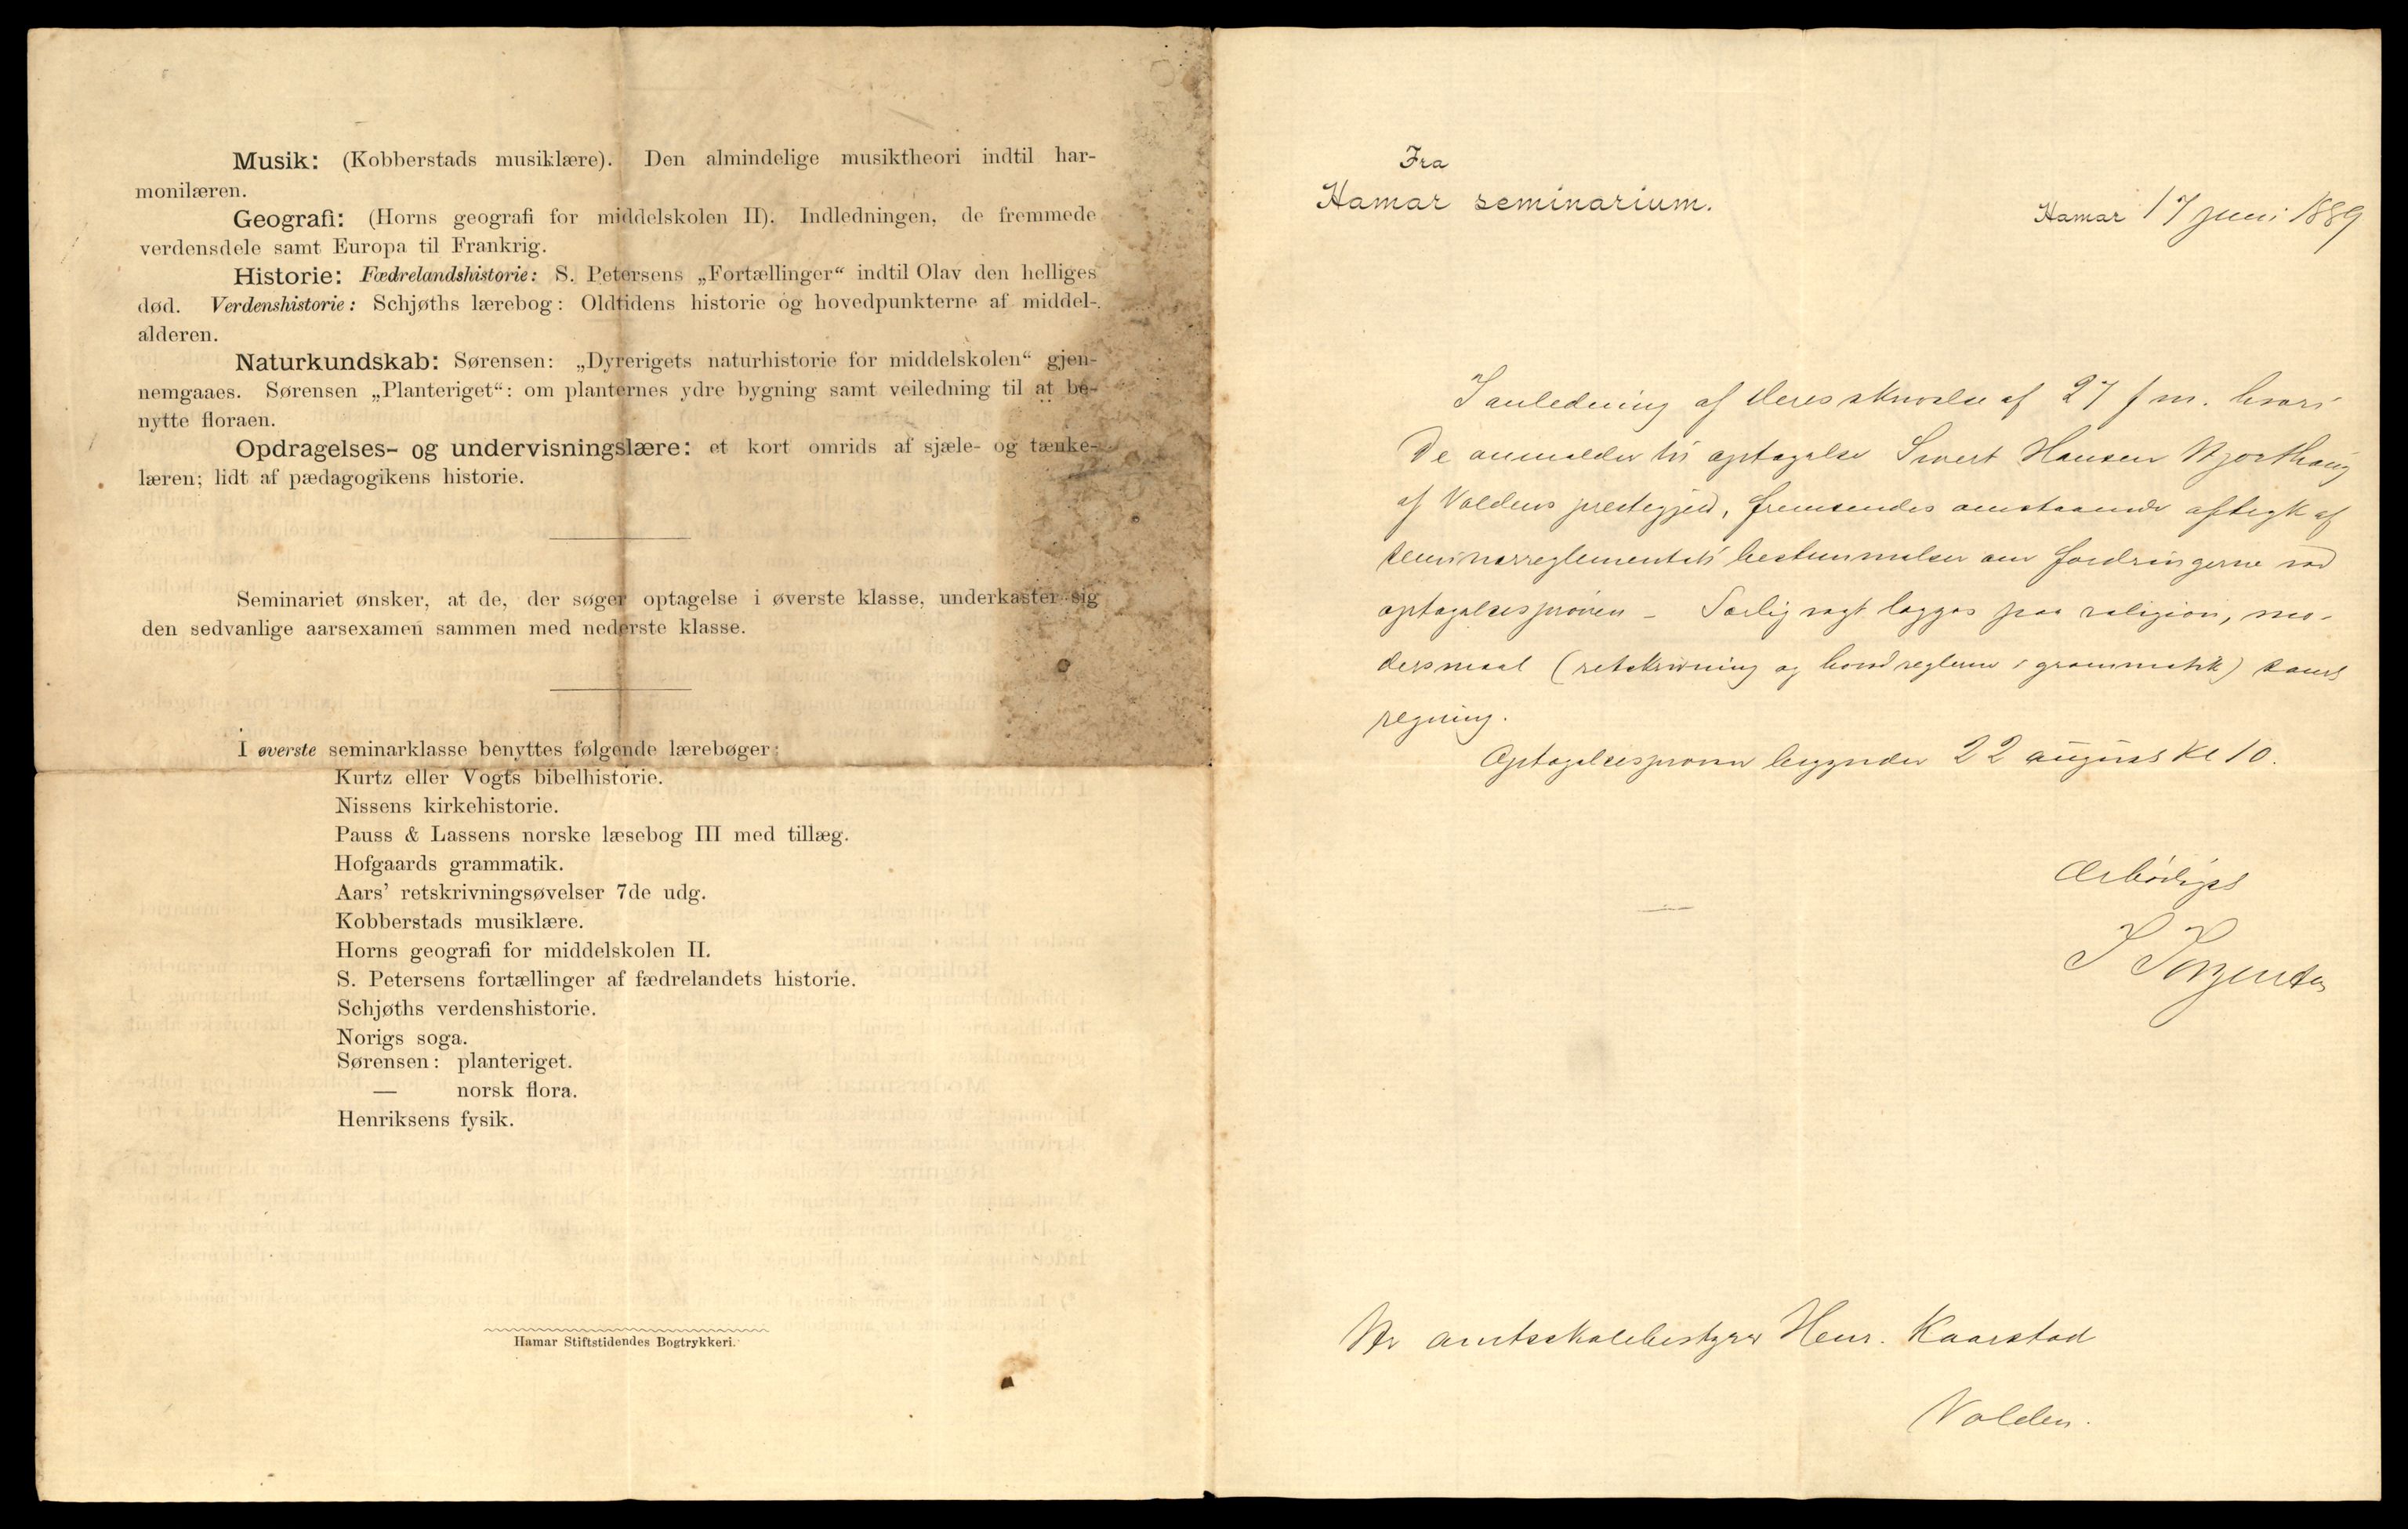 Musik: (Kobberstads musiklære). Den almindelige musiktheori indtil har-
monilæren.
Geografi: (Horns geografi for middelskolen II). Indledningen, de fremmede
verdensdele samt Europa til Frankrig.
Historie: Fædrelandshistorie: S. Petersens „Fortællinger“ indtil Olav den helliges
død. Verdenshistorie: Schjøths lærebog: Oldtidens historie og hovedpunkterne af middel-
alderen.
Naturkundskab: Sørensen: „Dyrerigets naturhistorie for middelskolen“ gjen-
nemgaaes. Sørensen „Planteriget“: om planternes ydre bygning samt veiledning til at be-
nytte floraen.
Opdragelses- og undervisningslære: et kort omrids af sjæle- og tænke-
læren; lidt af pædagogikens historie.
Seminariet ønsker, at de, der søger optagelse i øverste klasse, underkaster sig
den sedvanlige aarsexamen sammen med nederste klasse.
I øverste seminarklasse benyttes følgende lærebøger:
Kurtz eller Vogts bibelhistorie.
Nissens kirkehistorie.
Pauss & Lassens norske læsebog III med tillæg.
Hofgaards grammatik.
Aars’ retskrivningsøvelser 7de udg.
Kobberstads musiklære.
Horns geografi for middelskolen II.
S. Petersens fortællinger af fædrelandets historie.
Schjøths verdenshistorie.
Norigs soga.
Sørensen: planteriget.
— norsk flora.
Henriksens fysik.
Hamar Stiftstidendes Bogtrykkeri.
Fra
Hamar seminarium.
Hamar 17 juni 1889
I anledning af Deres skrivelse af 27 f m. hvori
De anmelder til optagelse Sivert Hansen
af Voldens prestegjeld, fremsendes omstaaende aftryk af
seminarreglementets bestemmelser om fordringerne ved
optagelsesprøven – Særlig vegt lægges paa religion, mo-
dersmaal (retskrivning og hovedreglerne i grammatik) samt
regning.
Optagelsesprøven begynder 22 august Kl 10.
Ærbødigst
Hr amtsskolebestyrer Henr. Kaarstad
Volden.